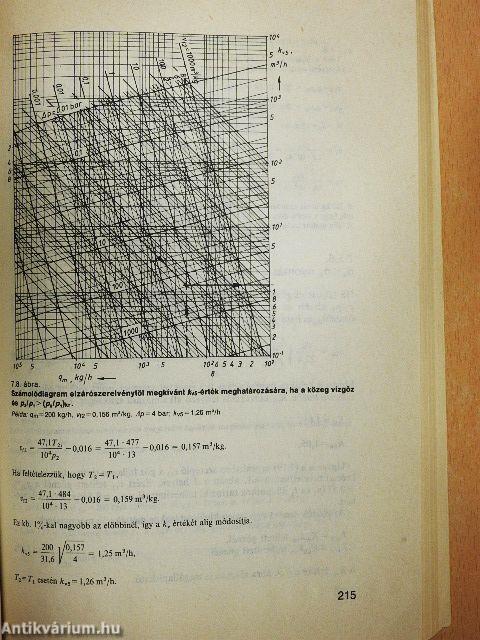 0,001
0,01
0,1
1
10
100
v₁₂=1000 m³/kg
Δp=0,01 bar
10⁴
5
kᵥₛ,
m³/h
10³
5
10²
5
10¹
5
10⁻¹
100
1000
10⁵ 5 10⁴ 5 10³ 5 10² 6 5 4 3 2 10¹
8
qₘ, kg/h
7.8. ábra.
Számolódiagram elzárószerelvénytől megkívánt kᵥₛ-érték meghatározására, ha a közeg vízgőz
és p₂/p₁ > (p₂/p₁)ₖᵣ.
Példa: qₘ=200 kg/h, v₁₂=0,156 m³/kg, Δp=4 bar; kᵥₛ=1,26 m³/h
v₁₂ = 47,1T₂₁ / 10⁴p₂ − 0,016 = 47,1 · 477 / 10⁴ · 13 − 0,016 = 0,157 m³/kg.
Ha feltételezzük, hogy T₂ = T₁,
v₁₂ = 47,1 · 484 / 10⁴ · 13 − 0,016 = 0,159 m³/kg.
Ez kb. 1%-kal nagyobb az előbbinél, így a kᵥ értékét alig módosítja.
kᵥₛ = 200 / 31,6 √(0,157 / 4) = 1,25 m³/h,
T₂=T₁ esetén kᵥₛ=1,26 m³/h.
215
Antikvárium.hu